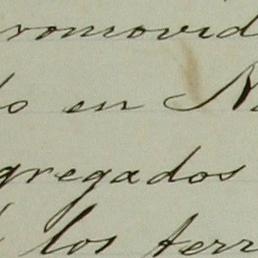 romovid
do en N
gregados
los terr